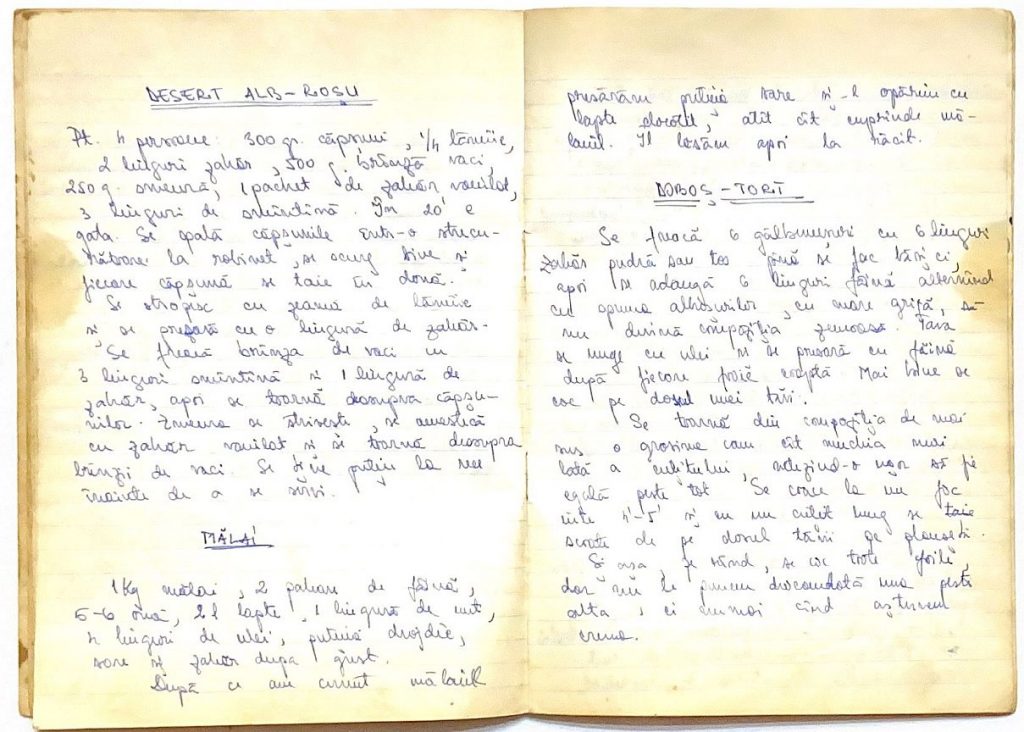 DESERT ALB-ROȘU
Pt. 4 persoane: 300 gr. căpșuni, 1/4 lămîie,
2 linguri zahăr, 500 g. brînză vaci,
250 g. smeură, 1 pachet de zahăr vanilat,
3 linguri de smîntînă. În 20' e
gata. Se spală căpșunile într-o strecu-
rătoare la robinet, se scurg bine și
fiecare căpșună se taie în două.
Se stropesc cu zeamă de lămîie
și se presară cu o lingură de zahăr.
Se freacă brînza de vaci cu
3 linguri smîntînă și 1 lingură de
zahăr, apoi se toarnă deasupra căpșu-
nilor. Zmeura se strivește, se amestică
cu zahăr vanilat și se toarnă deasupra
brînzii de vaci. Se ține puțin la rece
înainte de a se servi.
MĂLAI
1 Kg mălai, 2 pahare de făină,
5-6 ouă, 2 l lapte, 1 lingură de unt,
4 linguri de ulei, puțină drojdie,
sare și zahăr dupa gust.
După ce am cernut mălaiul
presărăm puțină sare și-l opărim cu
lapte clocotit, atît cît cuprinde mă-
laiul. Îl lăsăm apoi la răcit.
DOBOȘ-TORT
Se freacă 6 gălbenușuri cu 6 linguri
zahăr pudră sau tos pînă se fac bășici,
apoi se adaugă 6 linguri făină alternînd
cu spuma albușurilor, cu mare grijă, să
nu devină compoziția zemoasă. Tava
se unge cu ulei și se presară cu făină
după fiecare foaie coaptă. Mai bine se
coc pe dosul unei tăvi.
Se toarnă din compoziția de mai
sus o grosime cam cît muchia mai
lată a cuțitului, netezind-o ușor să fie
egală peste tot. Se coace la un foc
iute 4'-5' și cu un cuțit lung se taie
scoate de pe dosul tăvii pe planșetă.
Și așa, pe rînd, se coc toate foile,
dar nu le punem deocamdată una peste
alta, ci numai cînd așternem
crema.